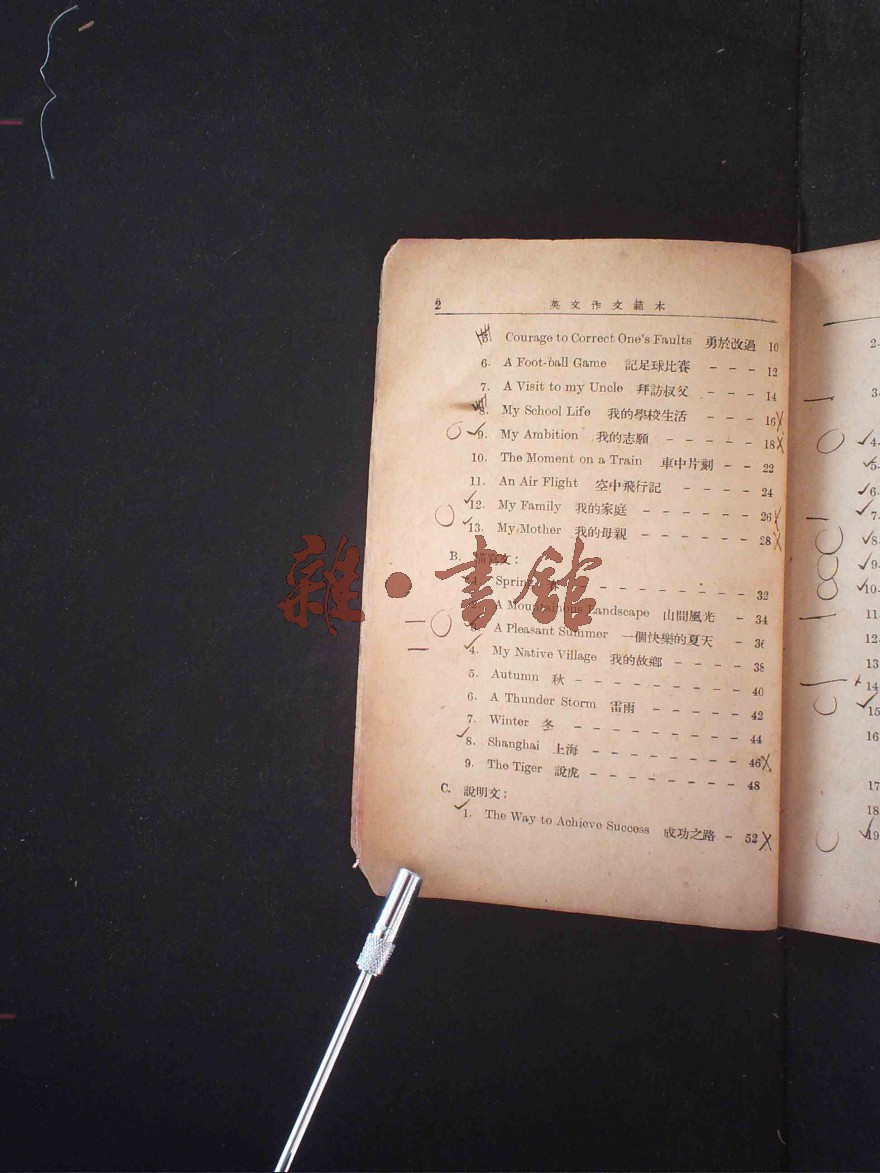 2 英文作文範本
5. Courage to Correct One's Faults 勇於改過 10
6. A Foot-ball Game 記足球比賽 - - - 12
7. A Visit to my Uncle 拜訪叔父 - - - 14
8. My School Life 我的學校生活 - - - 16
9. My Ambition 我的志願 - - - - - 18
10. The Moment on a Train 車中片刻 - - 22
11. An Air Flight 空中飛行記 - - - - 24
12. My Family 我的家庭 - - - - - - 26
13. My Mother 我的母親 - - - - - - 28
B. 描寫文:
1. Spring 春 - - - - - - - - 32
2. A Mountainous Landscape 山間風光 - 34
3. A Pleasant Summer 一個快樂的夏天 - 36
4. My Native Village 我的故鄉 - - - - 38
5. Autumn 秋 - - - - - - - - 40
6. A Thunder Storm 雷雨 - - - - - 42
7. Winter 冬 - - - - - - - - 44
8. Shanghai 上海 - - - - - - - 46
9. The Tiger 說虎 - - - - - - - 48
C. 說明文:
1. The Way to Achieve Success 成功之路 - 52
雜·書館
2.
3.
4.
5.
6.
7.
8.
9.
10.
11.
12.
13
14
15
16
17
18
19